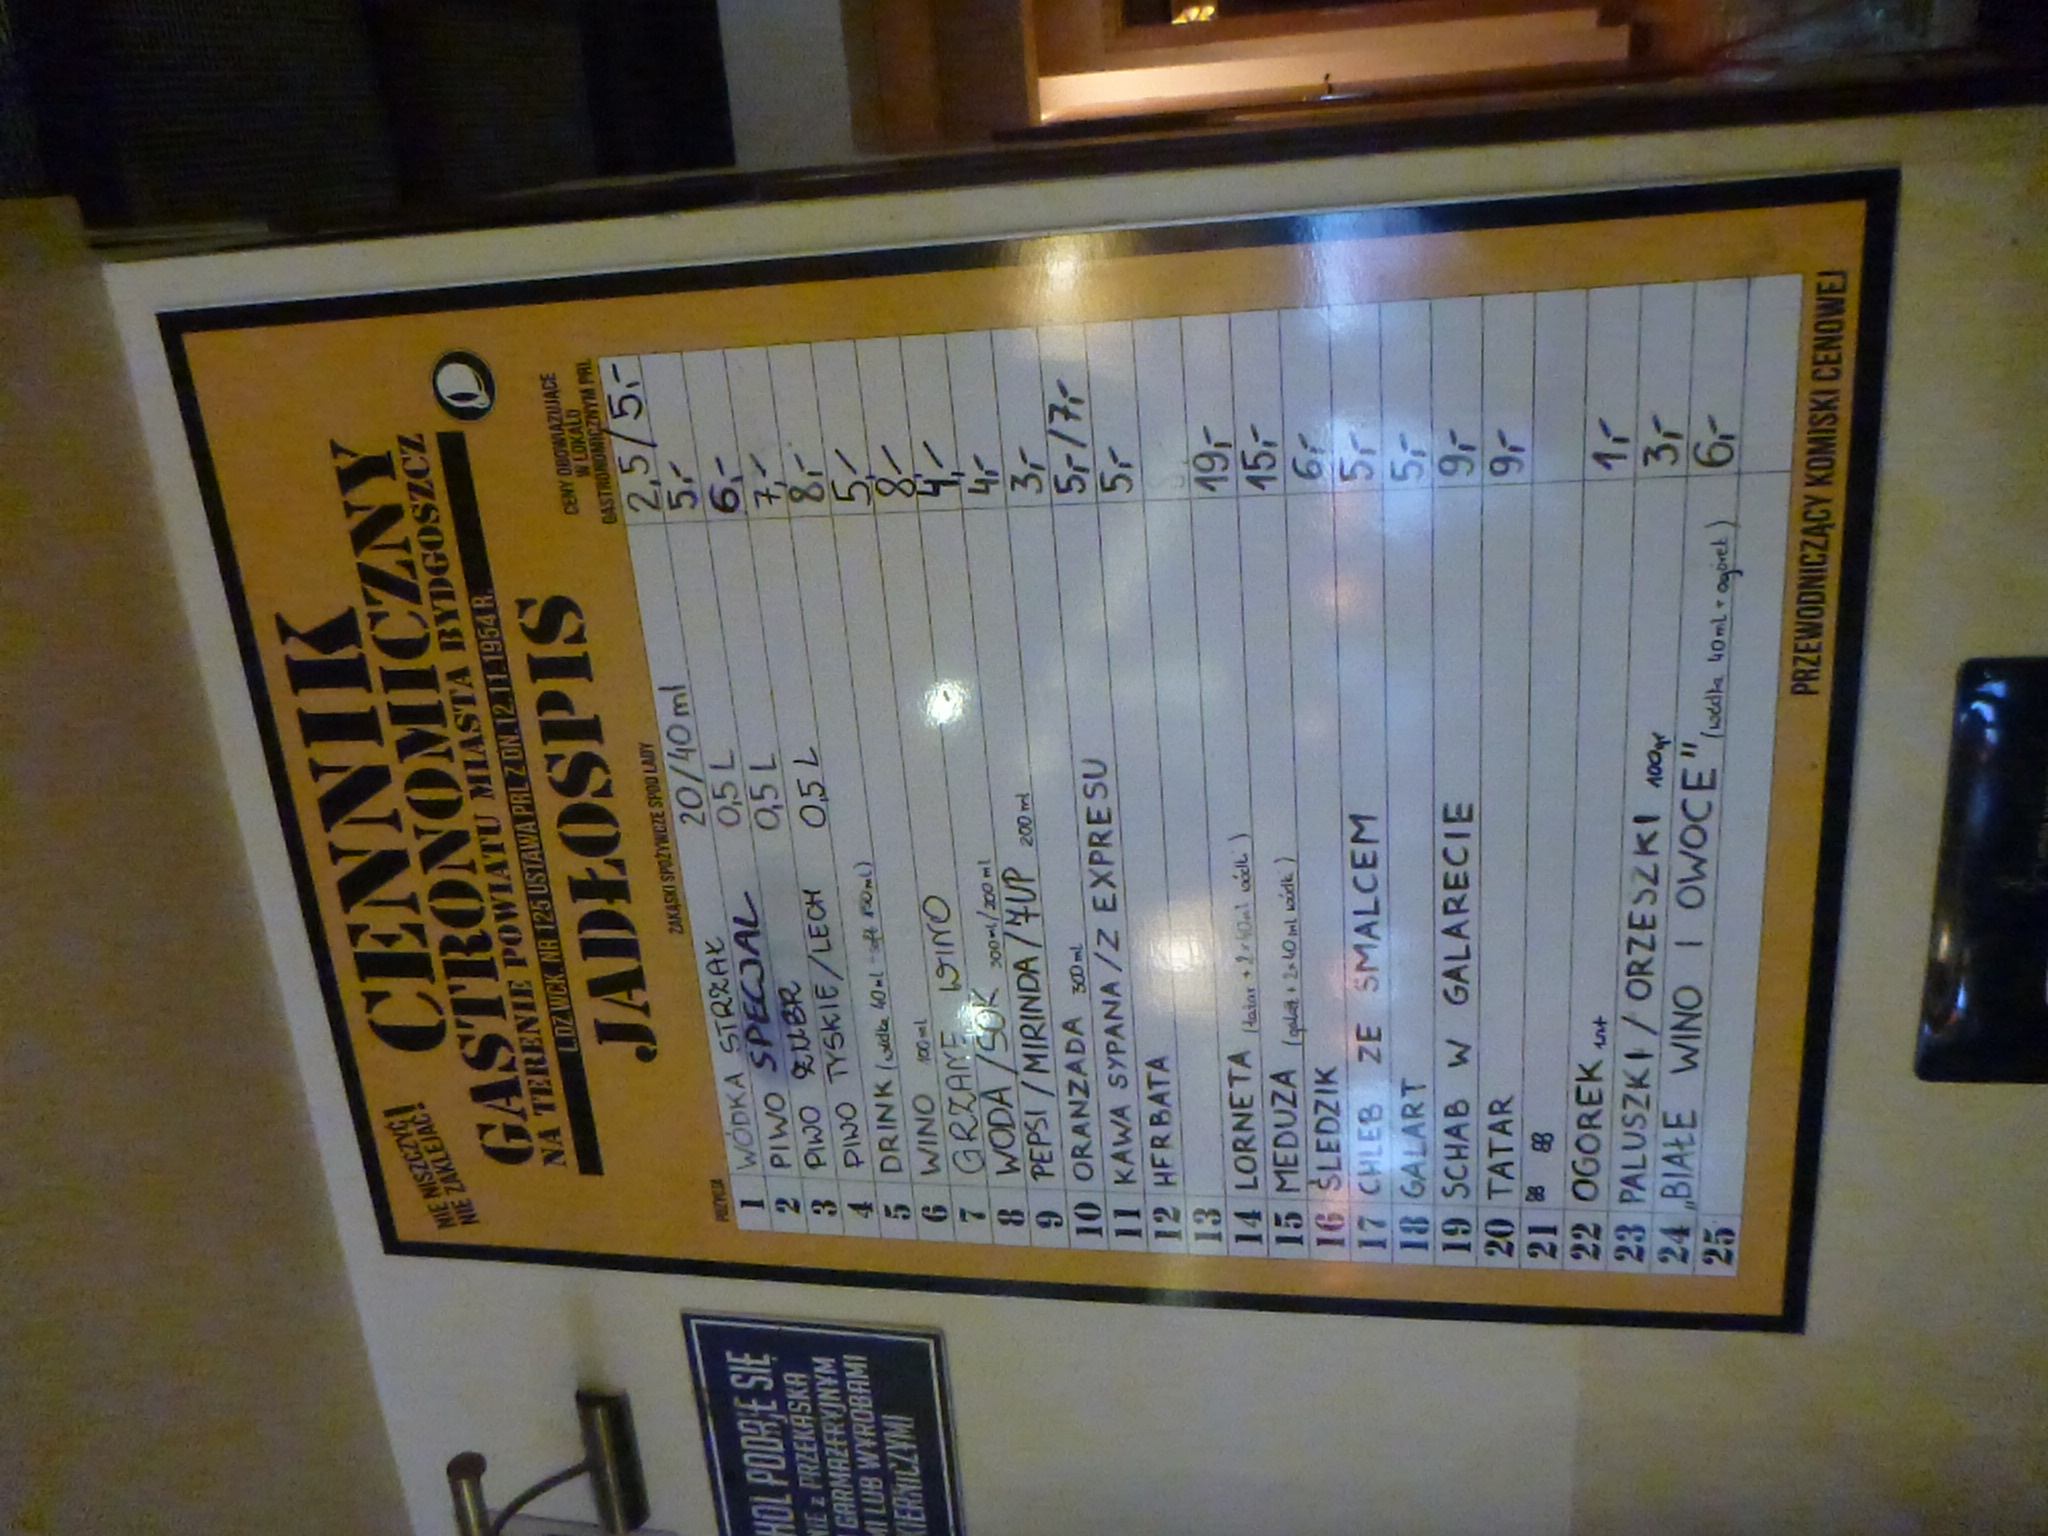 NIE NISZCZYĆ!
NIE ZAKLEJAĆ!
CENNIK
GASTRONOMICZNY
NA TERENIE POWIATU MIASTA BYDGOSZCZ
L.DZ.WCK. NR 125 USTAWA PRL Z DN. 12.11.1954 R.
JADŁOSPIS
CENY OBOWIĄZUJĄCE
W LOKALU
GASTRONOMICZNYM PRL
POZYCJA ZAKĄSKI SPOŻYWCZE SPOD LADY
1 WÓDKA STRZAŁ 20/40 ml 2,5/5,-
2 PIWO SPECJAL 0,5 L 5,-
3 PIWO ŻUBR 0,5 L 6,-
4 PIWO TYSKIE/LECH 0,5 L 7,-
5 DRINK (wódka 40ml + soft 150ml) 8,-
6 WINO 100ml 5,-
7 GRZANE WINO 8,-
8 WODA/SOK 300ml/200ml 4,-
9 PEPSI/MIRINDA/7UP 200 ml 4,-
10 ORANZADA 300ml 3,-
11 KAWA SYPANA/Z EXPRESU 5,-/7,-
12 HERBATA 5,-
13
14 LORNETA (tatar + 2x40ml wódki) 19,-
15 MEDUZA (galart + 2x40ml wódki) 15,-
16 ŚLEDZIK 6,-
17 CHLEB ZE SMALCEM 5,-
18 GALART 5,-
19 SCHAB W GALARECIE 9,-
20 TATAR 9,-
21
22 OGOREK szt 1,-
23 PALUSZKI/ORZESZKI 100gr 3,-
24 „BIAŁE WINO I OWOCE" (wódka 40ml + ogórek) 6,-
25
PRZEWODNICZĄCY KOMISKI CENOWEJ
HOL PODAJE SIĘ
IE z PRZEKĄSKĄ
GARMAŻERYJNYM
MI LUB WYROBAMI
KIERNICZYMI